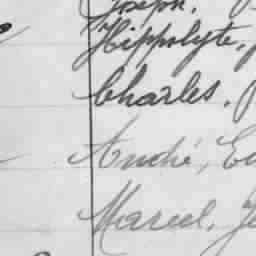 Joseph.
Hippolyte,
Charles,
André, Ed
Marcel, Je